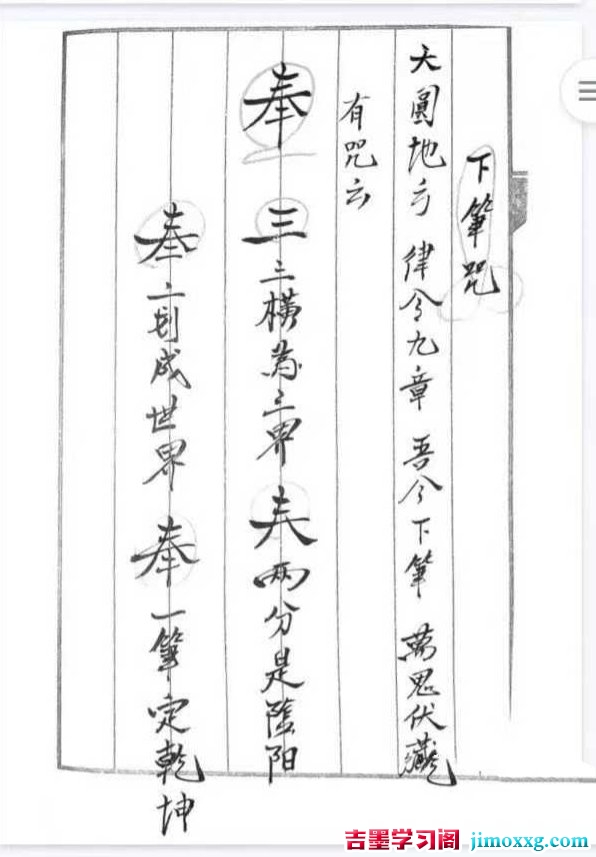 下筆咒
天圓地方 律令九章 吾今下筆 萬鬼伏藏
有咒云
奉 三 三橫為三界 𡗗 兩分是陰阳
奉 二划成世界 奉 一筆定乾坤
吉墨学习阁 jimoxxg.com